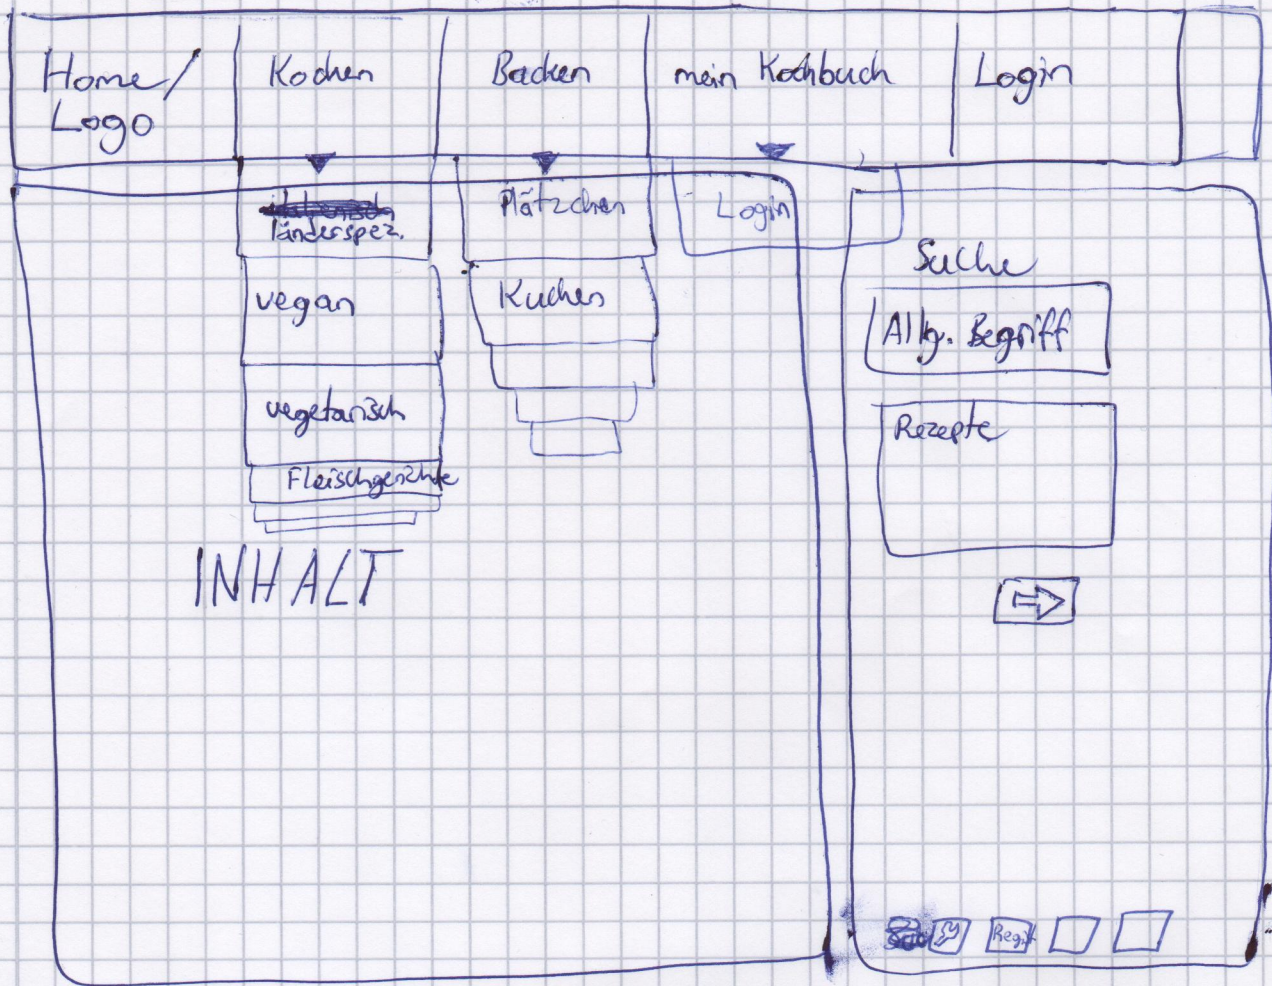 Home/
Logo
Kochen
Backen
mein Kochbuch
Login
länderspez.
vegan
vegetarisch
Fleischgerichte
Plätzchen
Kuchen
Login
Suche
Allg. Begriff
Rezepte
INHALT